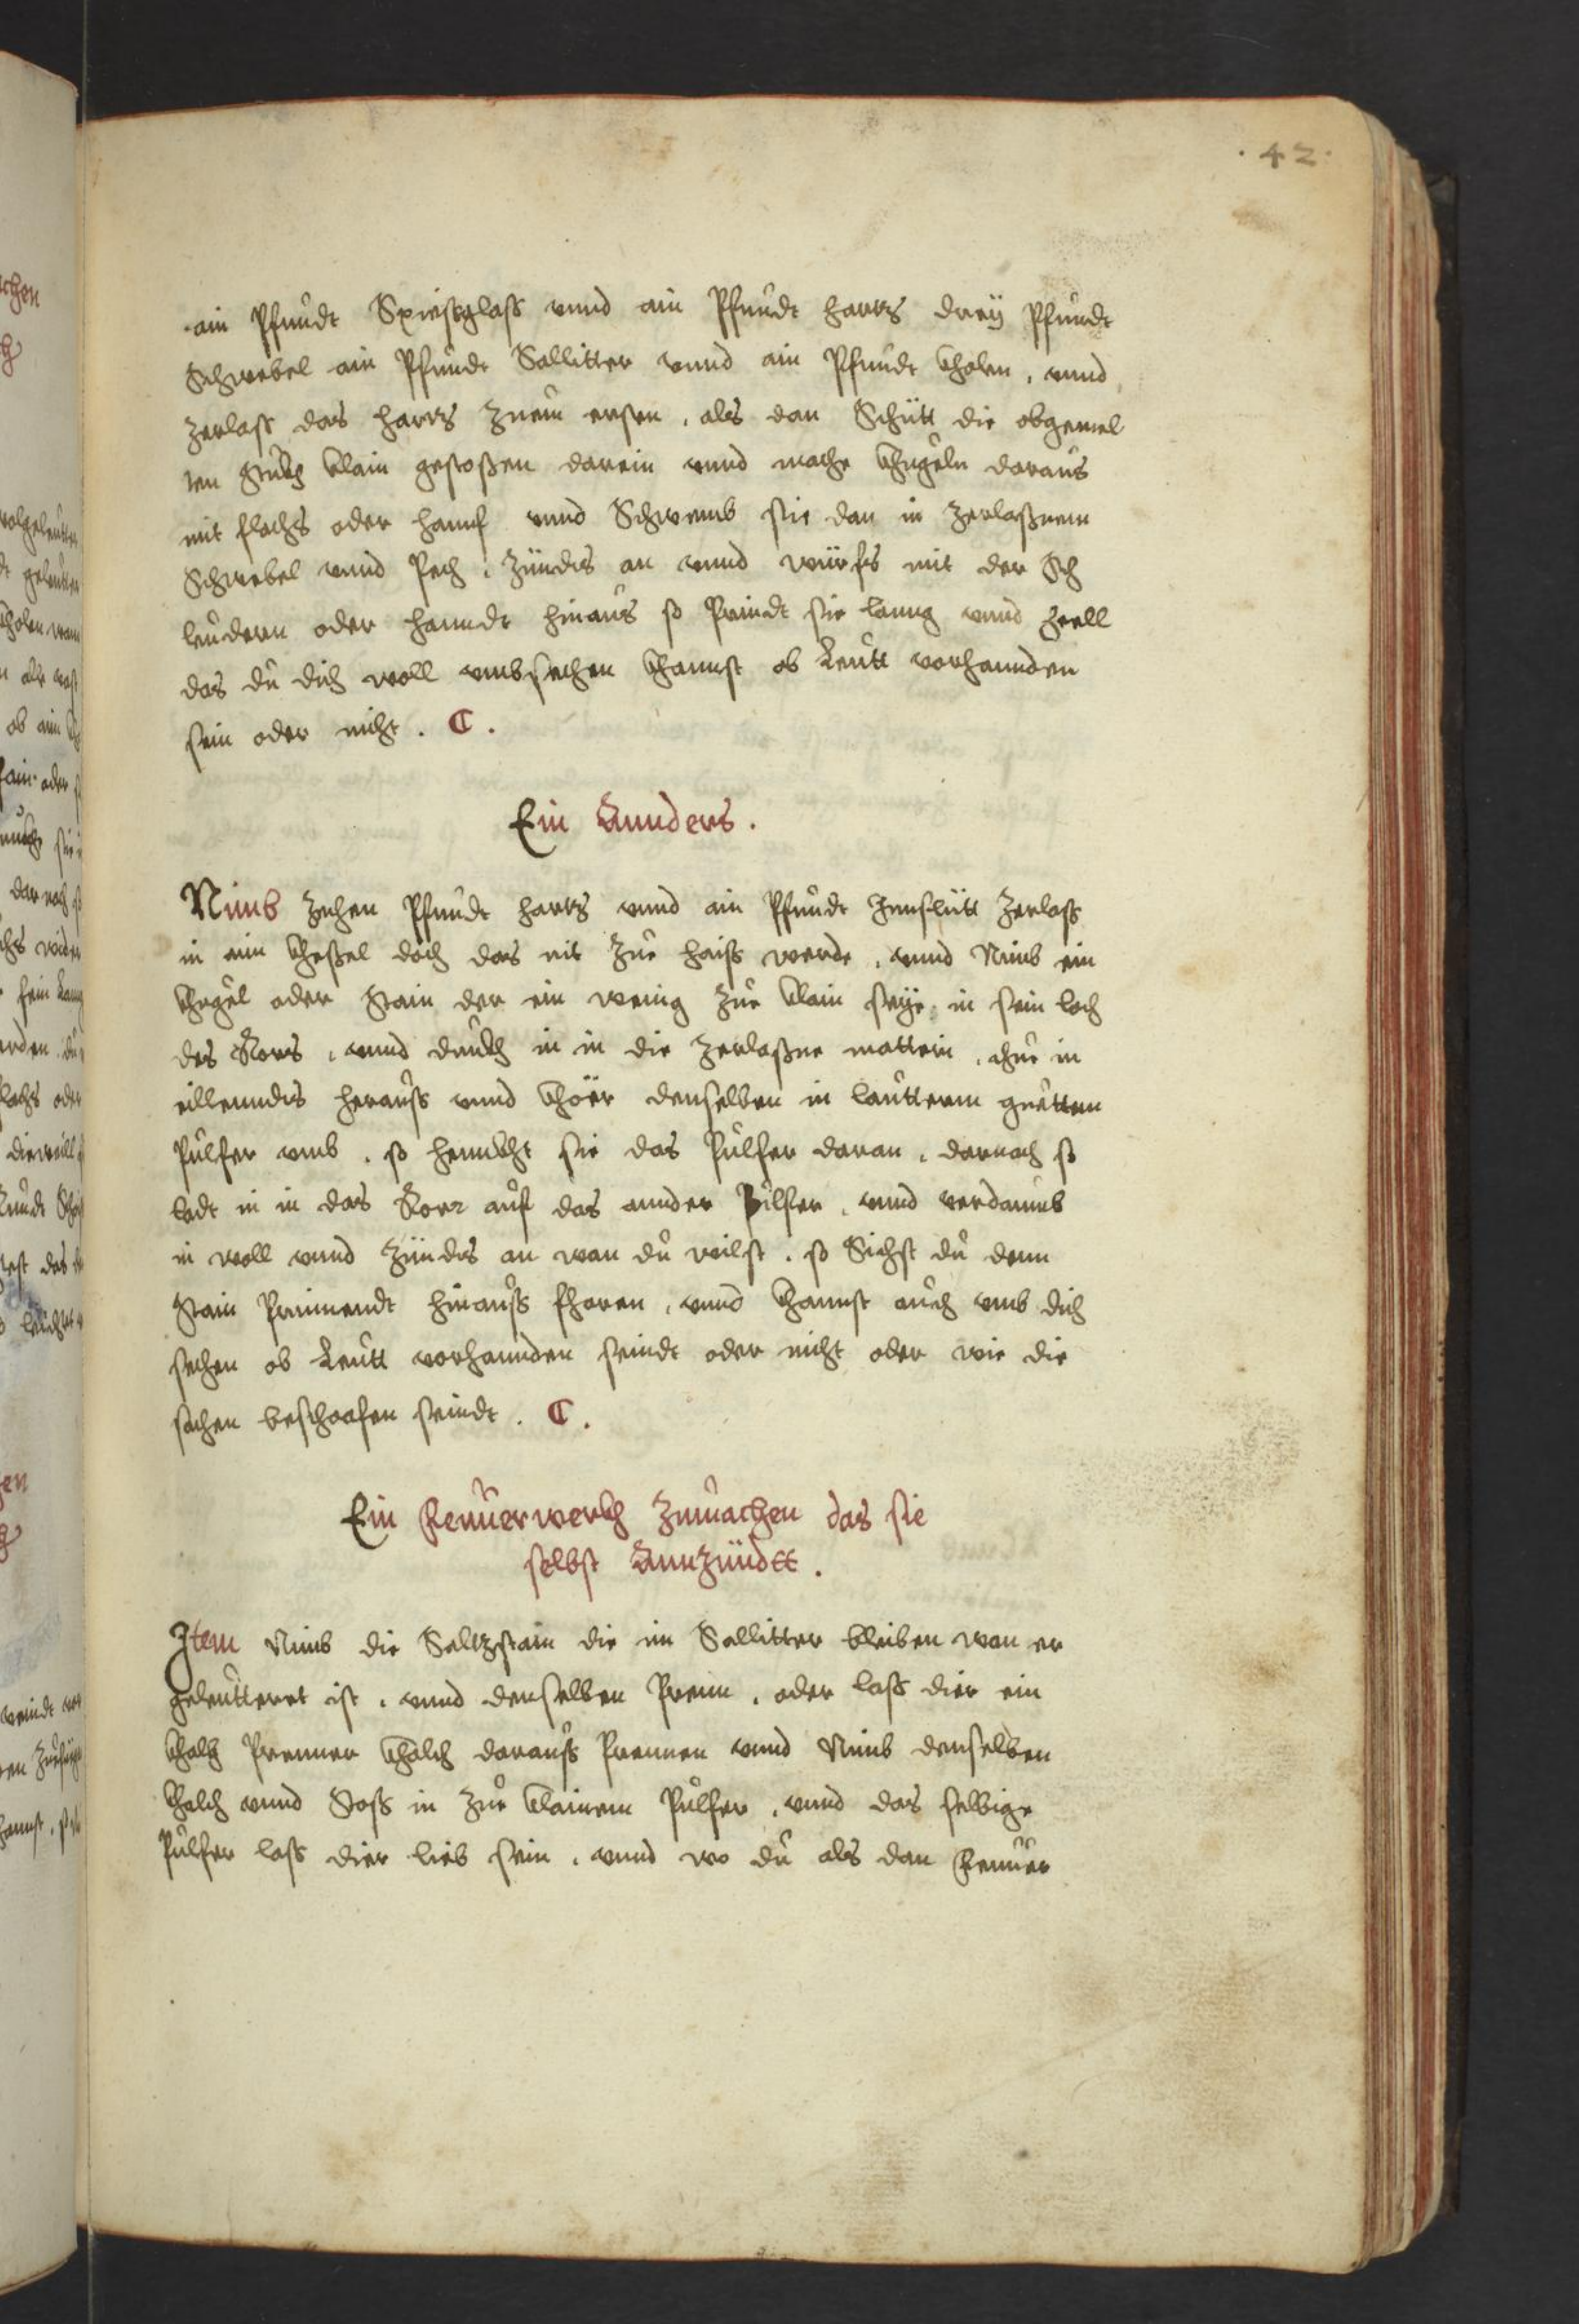 · 42 ·
ain Pfundt Spiesglass vnnd ain Pfundt hartz dreÿ Pfundt
Schwebel ain Pfundt Sallitter vnnd ain Pfundt kholen, vnnd
zerlass das hartz zuem ersten, als dan Schütt die obgemel
ten stuckh klain gestossen darein vnnd mache khugeln daraus
mit flachs oder hanuf vnnd Schwemb sie dan in zerlassnem
Schwebel vnnd Pech, zündts an vnnd würfs mit der Sch
leudern oder hanndt hinaus so Prindt sie lanng vnnd heell
das du dich woll vmbsechen khannst ob Leutt vorhannden
sein oder nicht. C.
Ein Annders.
Nimb zehen Pfundt hartz vnnd ain Pfundt Innslitt zerlass
in ein khessel doch das nit zue haiss werde, vnnd Nimb ein
khugel oder stain der ein wenig zue klain seÿe, in sein loch
des Rors, vnnd druckh in in die zerlassne mattein, thue in
eillenndts herauss vnnd khöer denselben in lautterm guetten
Pulfer vmb, so hennckht sie das Pulfer daran, darnach so
ladt in in das Rorr auf das annder Pulfer, vnnd verdamb
in woll vnnd zündts an wan du wilst, so Sichst du denn
stain Prinnendt hinauss fharen, vnnd khannst auch vmb dich
sechen ob Leutt vorhannden seindt oder nicht oder wie die
sachen beschaafen seindt. C.
Ein Feuuerwerckh zumachen das sie
selbst Annzündtt.
Item Nimb die Saltzstain die im Sallitter bleiben wan er
geleutteret ist, vnnd denselben Prenn, oder lass dier ein
khalch Prenner khalch darauss Prennen vnnd Nimb denselben
khalch vnnd stoss in zue klainem Pulfer, vnnd das selbige
Pulfer lass dier lieb sein, vnnd wo du als dan Feuuer